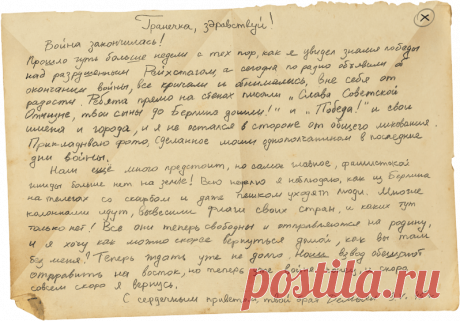 Гранечка, здравствуй!
Война закончилась!
Прошло чуть больше недели с тех пор, как я увидел знамя победы
над разрушенным Рейхстагом, а сегодня по радио объявили о
окончании войны, все кричали и обнимались, вне себя от
радости. Ребята прямо на стенах писали "Слава Советской
Отчизне, твои сыны до Берлина дошли!" и "Победа!" и свои
имена и города, и я не остался в стороне от общего ликования.
Прикладываю фото, сделанное моим однополчанином в последние
дни войны.
Нам ещё много предстоит, но самое главное, фашистской
нигды больше нет на земле! Всю неделю я наблюдаю, как из Берлина
на телегах со скарбом и даже пешком уходят люди. Многие
колоннами идут, вывесили флаги своих стран, и каких тут
только нет! Все они теперь свободны и отправляются на родину,
и я хочу как можно скорее вернуться домой, как вы там
без меня? Теперь ждать уже не долго. Наш взвод обещают
отправить на восток, но теперь уже война и скоро,
совсем скоро я вернусь.
С сердечным приветом, твой брат
posta-magazine.ru